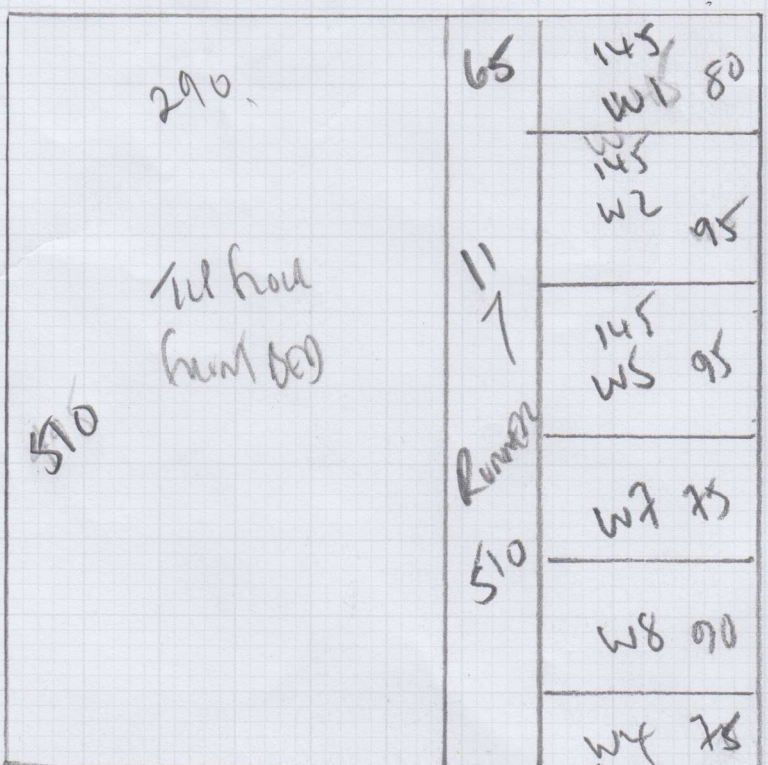 290.
510
65
11
RUNNER
510
145
W1 80
145
W2
95
145
W5 95
W7 75
W8 90
W4 75